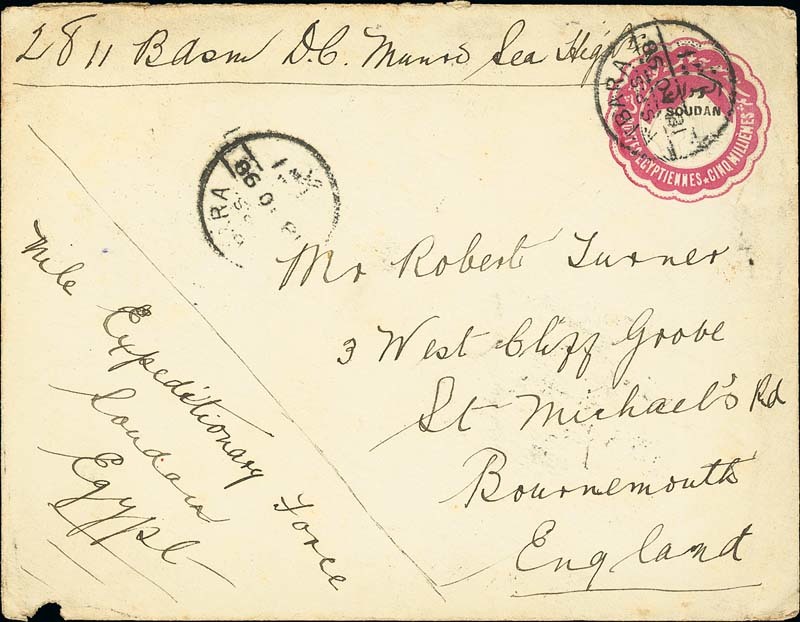 2811 Bdsm D.C. Munro Sea High
SOUDAN
POSTES EGYPTIENNES CINQ MILLIÈMES
BARA
98
Mr Robert Turner.
3 West Cliff Grove
St Michael's Rd
Bournemouth
England
Nile Expeditionary Force
Soudan
Egypt